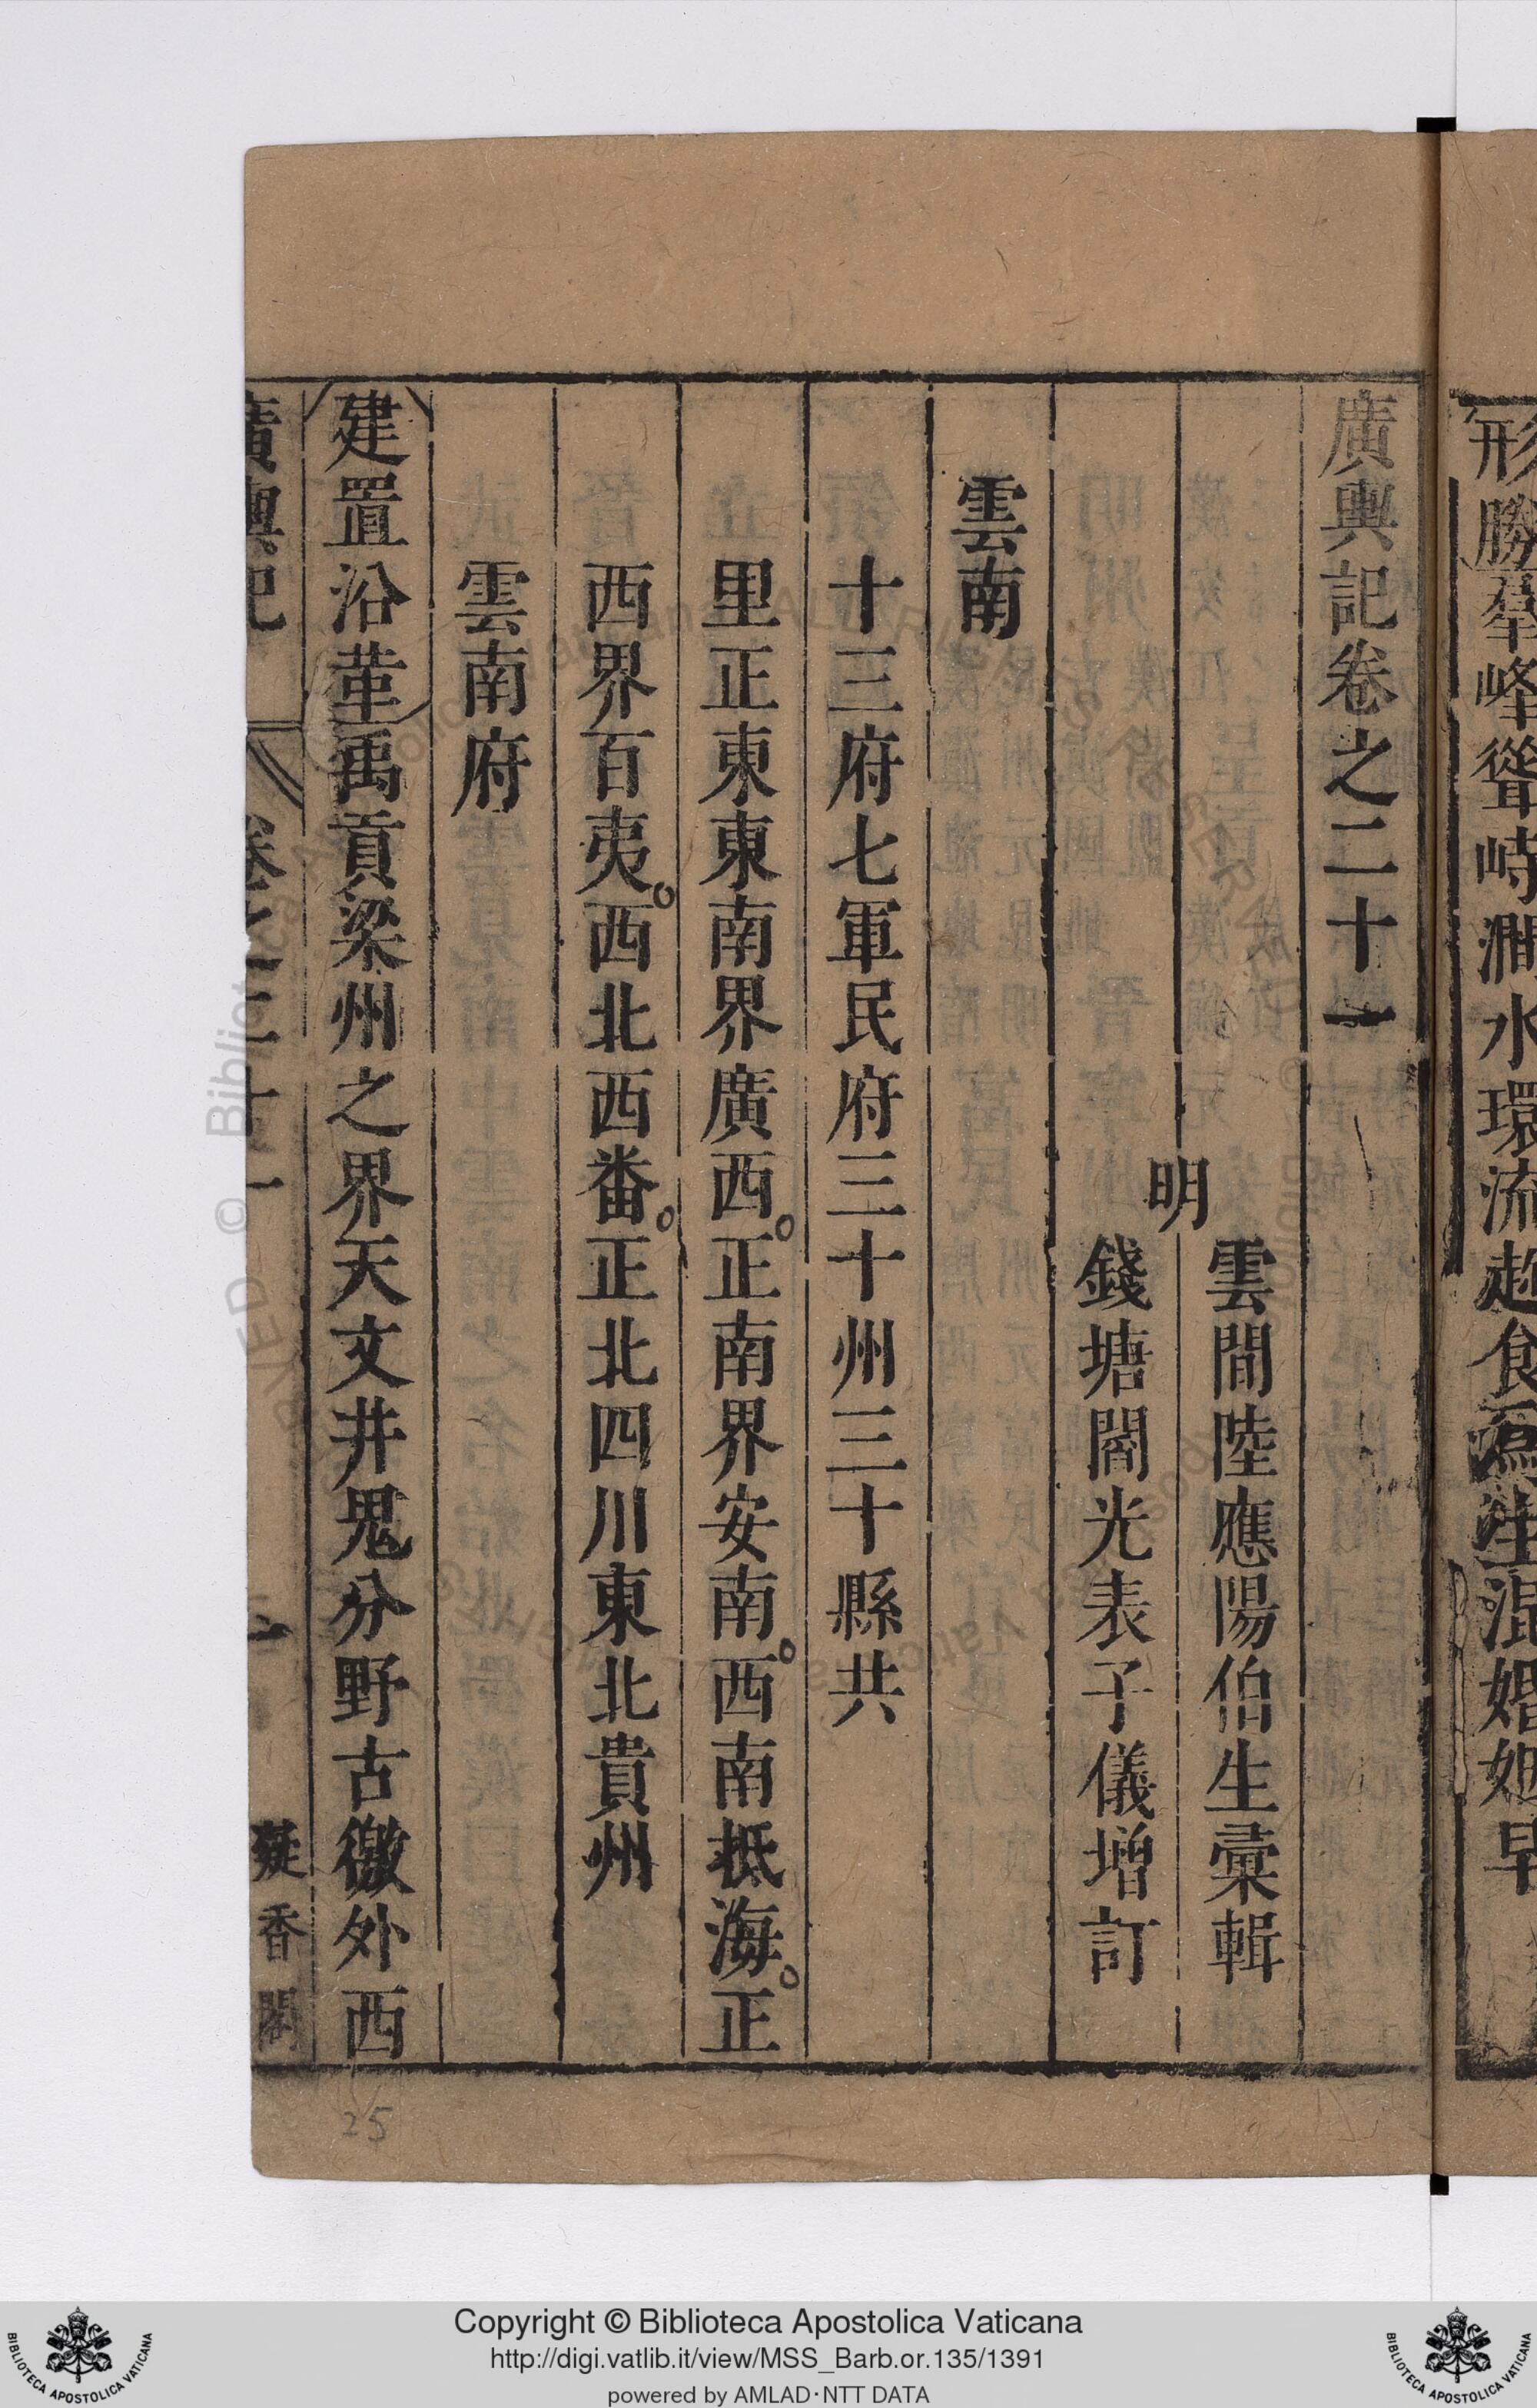 形勝羣峰聳峙澗水環流趂食為生混婚如早
廣輿記卷之二十一
明
雲間陸應陽伯生彙輯
錢塘閻光表子儀增訂
雲南
十三府七軍民府三十州三十縣共
里正東東南界廣西。正南界安南。西南抵海。正
西界百夷。西北西番。正北四川東北貴州
雲南府
建置沿革禹貢梁州之界天文井鬼分野古徼外西
廣輿記 卷之二十一 一 凝香閣
25
Copyright © Biblioteca Apostolica Vaticana
http://digi.vatlib.it/view/MSS_Barb.or.135/1391
powered by AMLAD·NTT DATA
BIBLIOTECA APOSTOLICA VATICANA
BIBLIOTECA APOSTOLICA VATICANA